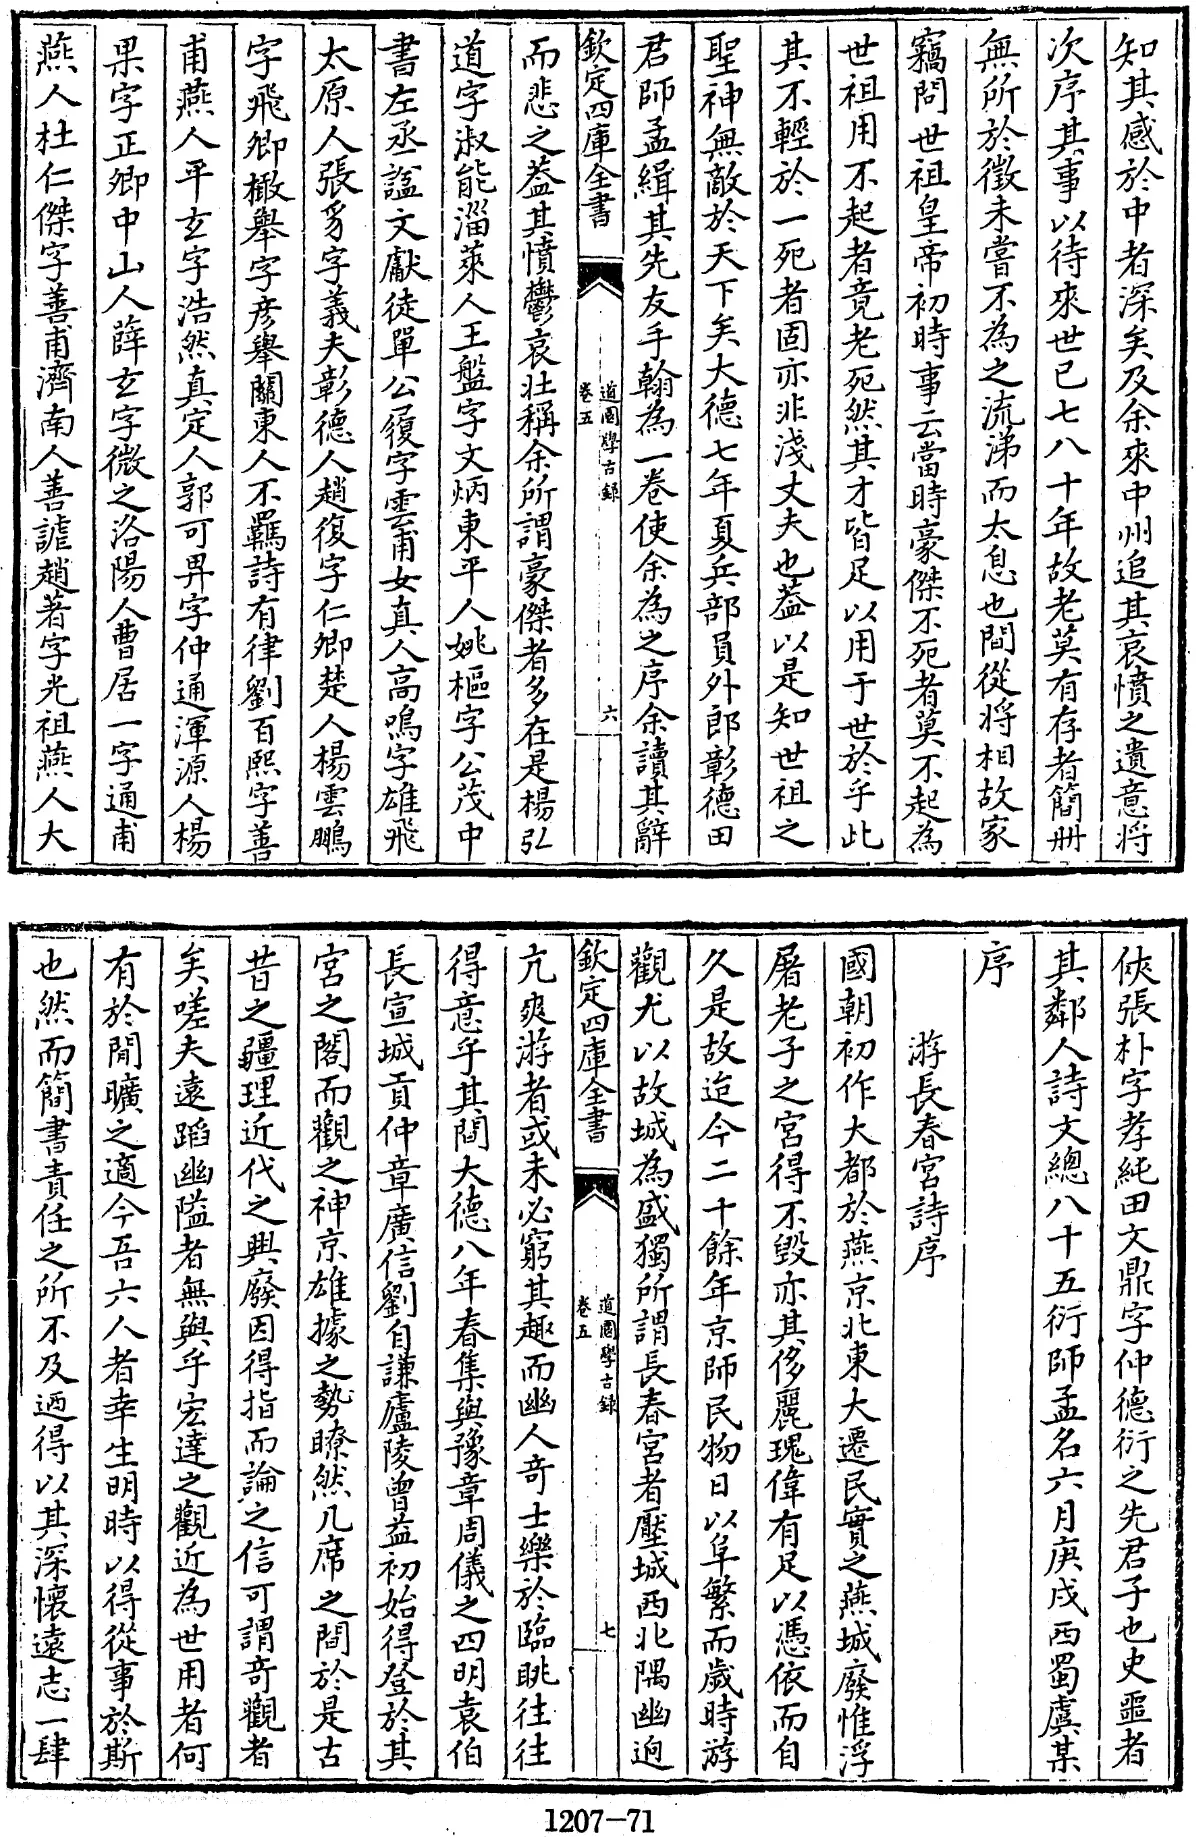 知其感於中者深矣及余來中州追其哀憤之遺意將
次序其事以待來世已七八十年故老莫有存者簡冊
無所於徵未嘗不為之流涕而太息也間從將相故家
竊問世祖皇帝初時事云當時豪傑不死者莫不起為
世祖用不起者竟老死然其才皆足以用于世於乎此
其不輕於一死者固亦非淺丈夫也葢以是知世祖之
聖神無敵於天下矣大德七年夏兵部員外郎彰德田
君師孟緝其先友手翰為一卷使余為之序余讀其辭
欽定四庫全書
道園學古錄
卷五
六
而悲之葢其憤鬱哀壯稱余所謂豪傑者多在是楊弘
道字淑能淄萊人王盤字文炳東平人姚樞字公茂中
書左丞諡文獻徒單公履字雲甫女真人高鳴字雄飛
太原人張豸字義夫彰德人趙復字仁卿楚人楊雲鵬
字飛卿檄舉字彦舉關東人不羈詩有律劉百熙字善
甫燕人平玄字浩然真定人郭可畀字仲通渾源人楊
果字正卿中山人薛玄字微之洛陽人曹居一字通甫
燕人杜仁傑字善甫濟南人善謔趙著字光祖燕人大
俠張朴字孝純田文鼎字仲德衍之先君子也史噩者
其鄰人詩文總八十五衍師孟名六月庚戌西蜀虞某
序
游長春宮詩序
國朝初作大都於燕京北東大遷民實之燕城廢惟浮
屠老子之宮得不毀亦其侈麗瑰偉有足以憑依而自
久是故迨今二十餘年京師民物日以阜繁而歲時游
觀尤以故城為盛獨所謂長春宮者壓城西北隅幽迥
欽定四庫全書
道園學古錄
卷五
七
亢爽游者或未必窮其趣而幽人奇士樂於臨眺往往
得意乎其間大德八年春集與豫章周儀之四明袁伯
長宣城貢仲章廣信劉自謙廬陵曾益初始得登於其
宮之閣而觀之神京雄據之勢瞭然几席之間於是古
昔之疆理近代之興廢因得指而論之信可謂奇觀者
矣嗟夫遠蹈幽隘者無與乎宏達之觀近為世用者何
有於閒曠之適今吾六人者幸生明時以得從事於斯
也然而簡書責任之所不及迺得以其深懷遠志一肆
1207-71